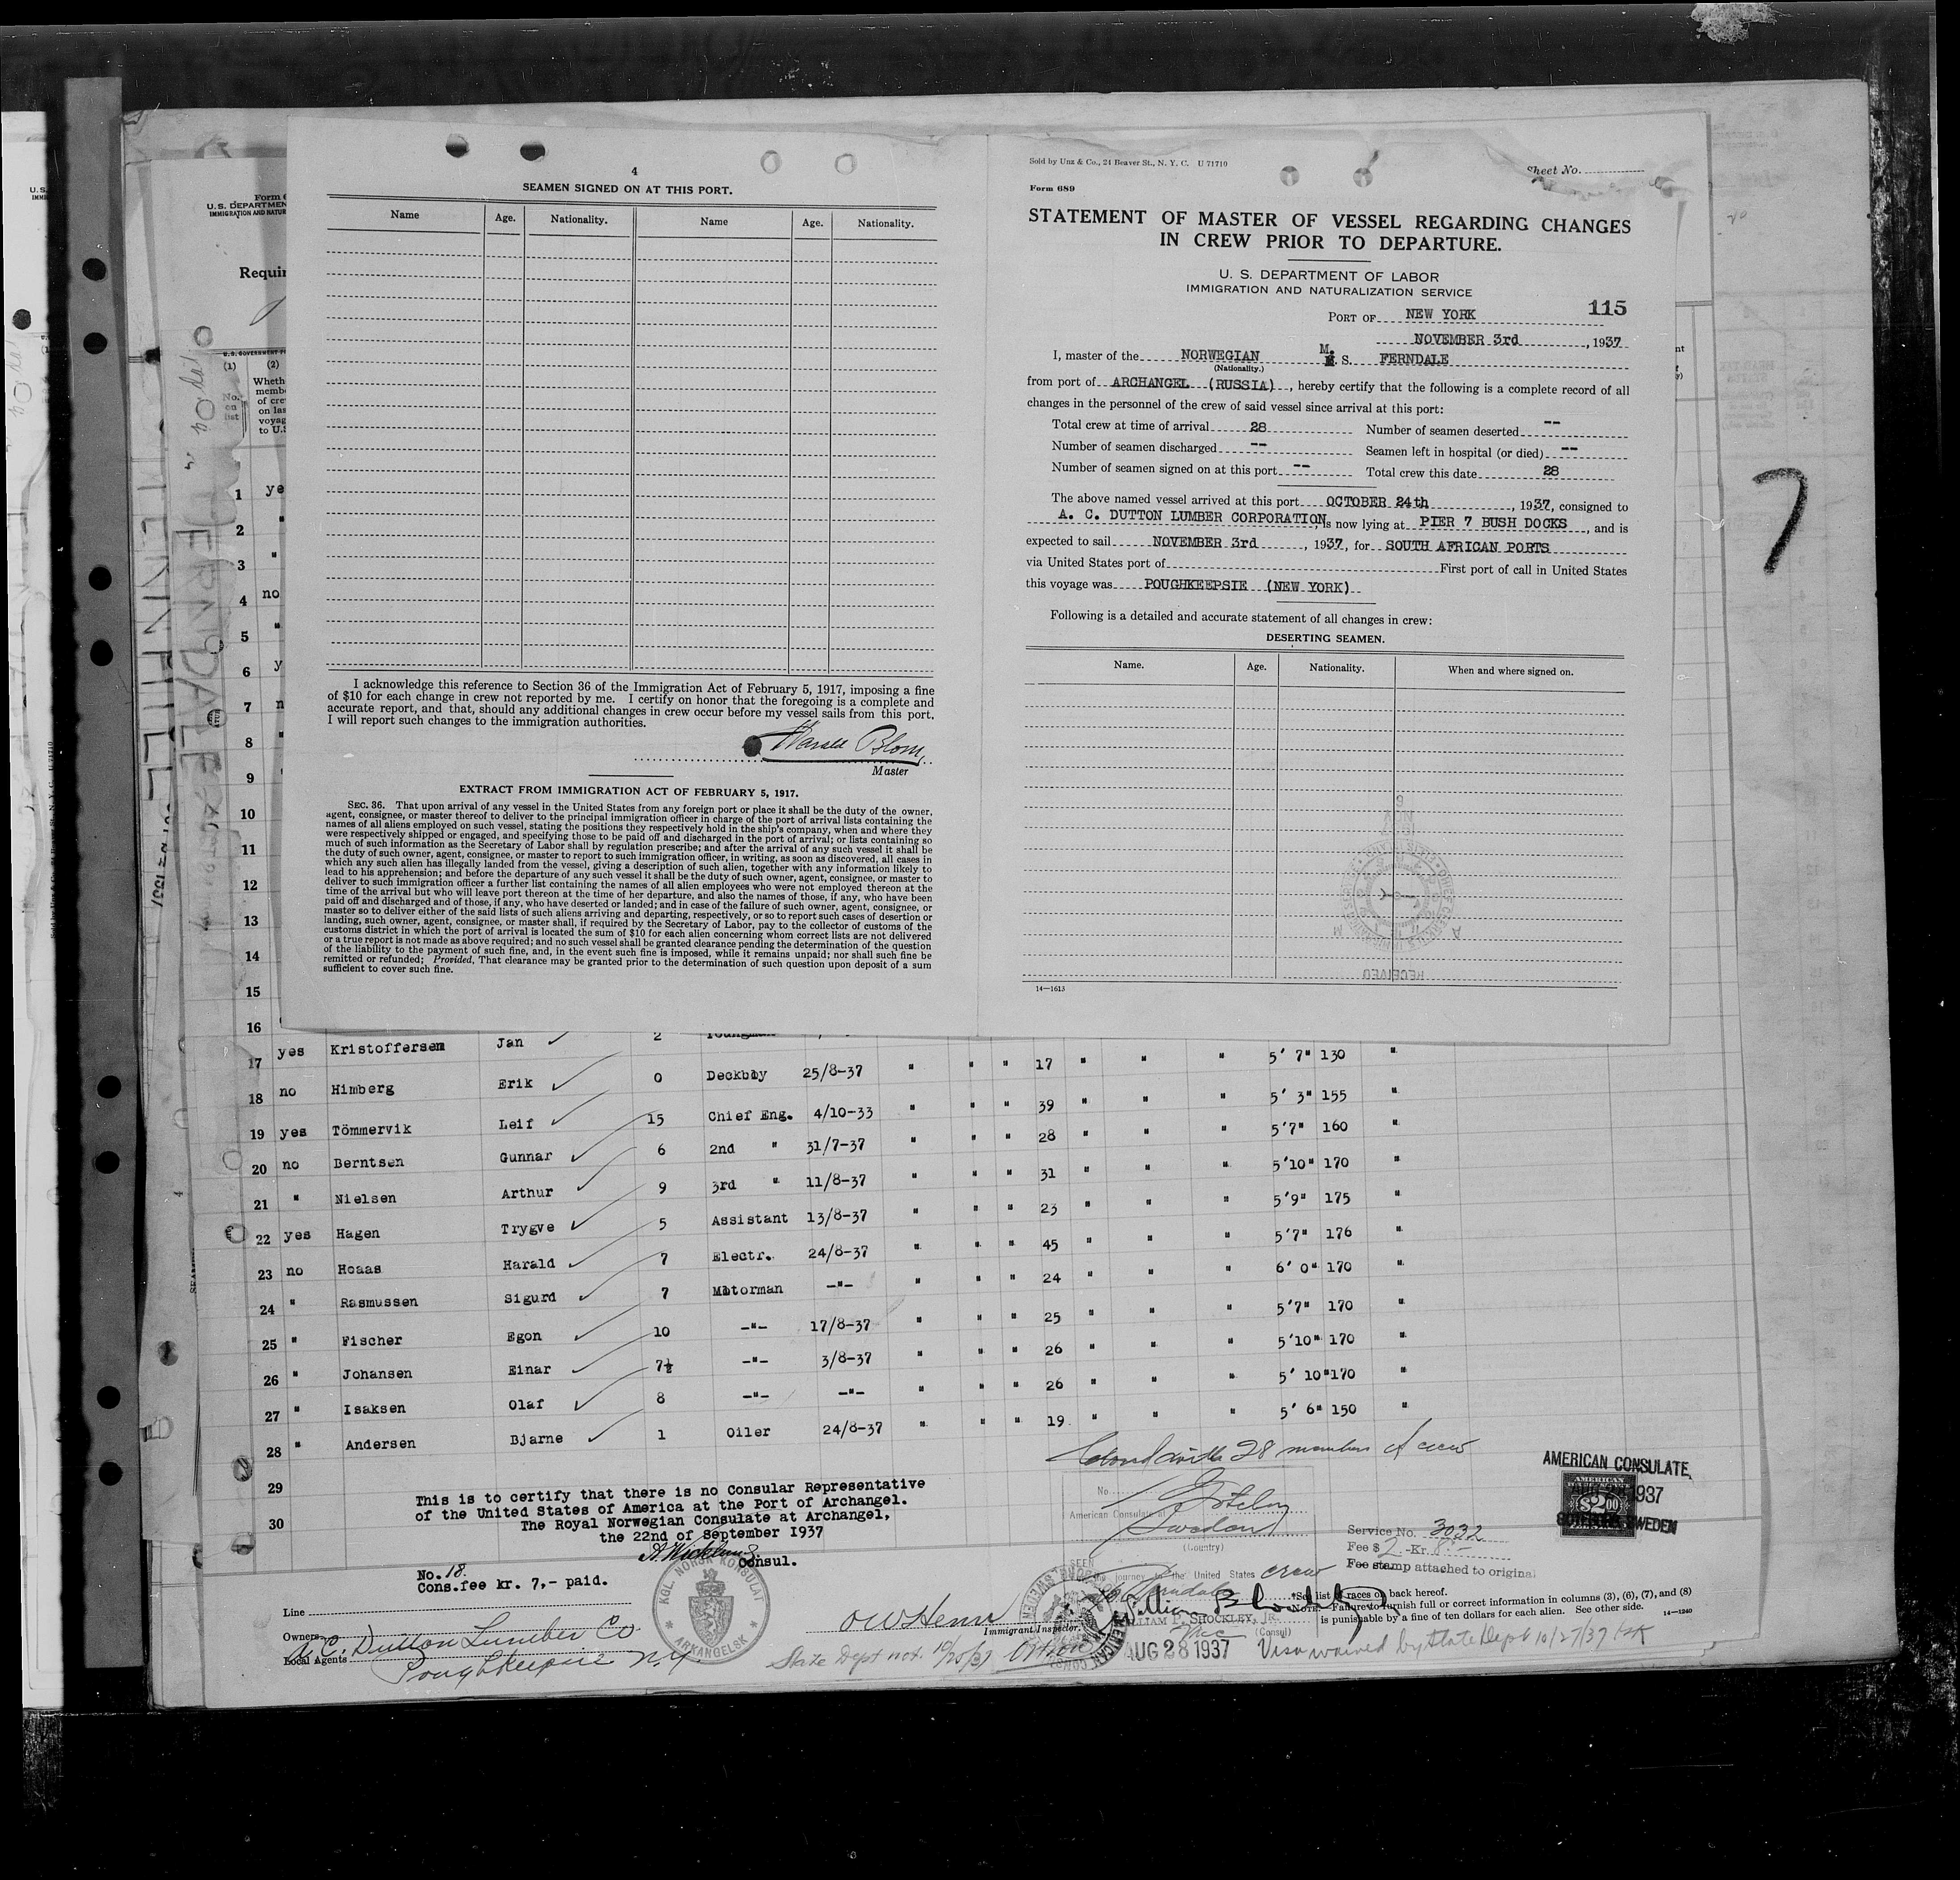 4
SEAMEN SIGNED ON AT THIS PORT.
Name Age. Nationality. Name Age. Nationality.
I acknowledge this reference to Section 36 of the Immigration Act of February 5, 1917, imposing a fine
of $10 for each change in crew not reported by me. I certify on honor that the foregoing is a complete and
accurate report, and that, should any additional changes in crew occur before my vessel sails from this port,
I will report such changes to the immigration authorities.
Harald Blom
Master
EXTRACT FROM IMMIGRATION ACT OF FEBRUARY 5, 1917.
SEC. 36. That upon arrival of any vessel in the United States from any foreign port or place it shall be the duty of the owner,
agent, consignee, or master thereof to deliver to the principal immigration officer in charge of the port of arrival lists containing the
names of all aliens employed on such vessel, stating the positions they respectively hold in the ship's company, when and where they
were respectively shipped or engaged, and specifying those to be paid off and discharged in the port of arrival; or lists containing so
much of such information as the Secretary of Labor shall by regulation prescribe; and after the arrival of any such vessel it shall be
the duty of such owner, agent, consignee, or master to report to such immigration officer, in writing, as soon as discovered, all cases in
which any such alien has illegally landed from the vessel, giving a description of such alien, together with any information likely to
lead to his apprehension; and before the departure of any such vessel it shall be the duty of such owner, agent, consignee, or master to
deliver to such immigration officer a further list containing the names of all alien employees who were not employed thereon at the
time of the arrival but who will leave port thereon at the time of her departure, and also the names of those, if any, who have been
paid off and discharged and of those, if any, who have deserted or landed; and in case of the failure of such owner, agent, consignee, or
master so to deliver either of the said lists of such aliens arriving and departing, respectively, or so to report such cases of desertion or
landing, such owner, agent, consignee, or master shall, if required by the Secretary of Labor, pay to the collector of customs of the
customs district in which the port of arrival is located the sum of $10 for each alien concerning whom correct lists are not delivered
or a true report is not made as above required; and no such vessel shall be granted clearance pending the determination of the question
of the liability to the payment of such fine, and, in the event such fine is imposed, while it remains unpaid; nor shall such fine be
remitted or refunded; Provided, That clearance may be granted prior to the determination of such question upon deposit of a sum
sufficient to cover such fine.
Sold by Unz & Co., 24 Beaver St., N. Y. C. U 71710
Sheet No.
Form 689
STATEMENT OF MASTER OF VESSEL REGARDING CHANGES
IN CREW PRIOR TO DEPARTURE.
U. S. DEPARTMENT OF LABOR
IMMIGRATION AND NATURALIZATION SERVICE
115
PORT OF NEW YORK
NOVEMBER 3rd, 1937
I, master of the NORWEGIAN M. S. FERNDALE
(Nationality.)
from port of ARCHANGEL (RUSSIA), hereby certify that the following is a complete record of all
changes in the personnel of the crew of said vessel since arrival at this port:
Total crew at time of arrival 28 Number of seamen deserted --
Number of seamen discharged -- Seamen left in hospital (or died) --
Number of seamen signed on at this port -- Total crew this date 28
The above named vessel arrived at this port OCTOBER 24th, 1937, consigned to
A. C. DUTTON LUMBER CORPORATION, is now lying at PIER 7 BUSH DOCKS, and is
expected to sail NOVEMBER 3rd, 1937, for SOUTH AFRICAN PORTS
via United States port of First port of call in United States
this voyage was POUGHKEEPSIE (NEW YORK)
Following is a detailed and accurate statement of all changes in crew:
DESERTING SEAMEN.
Name. Age. Nationality. When and where signed on.
RECEIVED
14—1613
7
Form
U. S. DEPARTMEN
IMMIGRATION AND NATUR
Requir
(1) (2)
No. on list
Wheth
memb
of cre
on las
voyag
to U.S
1 ye
2 "
3 "
4 no
5 "
6 y
7 n
8 "
9
10
11
12
13
14
15
16
17 yes Kristoffersen Jan 2 Youngman 17 " " " 5' 7" 130 "
18 no Himberg Erik 0 Deckboy 25/8-37 " " " 17 " " " 5' 3" 155 "
19 yes Tömmervik Leif 15 Chief Eng. 4/10-33 " " " 39 " " " 5'7" 160 "
20 no Berntsen Gunnar 6 2nd " 31/7-37 " " " 28 " " " 5'10" 170 "
21 " Nielsen Arthur 9 3rd " 11/8-37 " " " 31 " " " 5'9" 175 "
22 yes Hagen Trygve 5 Assistant 13/8-37 " " " 23 " " " 5'7" 176 "
23 no Hoaas Harald 7 Electr. 24/8-37 " " " 45 " " " 6' 0" 170 "
24 " Rasmussen Sigurd 7 Motorman -"- " " " 24 " " " 5'7" 170 "
25 " Fischer Egon 10 -"- 17/8-37 " " " 25 " " " 5'10" 170 "
26 " Johansen Einar 7½ -"- 3/8-37 " " " 26 " " " 5' 10" 170 "
27 " Isaksen Olaf 8 -"- -"- " " " 26 " " " 5' 6" 150 "
28 " Andersen Bjarne 1 Oiler 24/8-37 " " " 19 " " "
29
30
This is to certify that there is no Consular Representative
of the United States of America at the Port of Archangel.
The Royal Norwegian Consulate at Archangel,
the 22nd of September 1937
Consul.
No. 18.
Cons.fee kr. 7,- paid.
KGL. NORSK KONSULAT
ARKANGELSK
Line
Owners
A.C. Dutton Lumber Co.
Local Agents
Poughkeepsie N.Y.
Immigrant Inspector.
28 members of crew
No.
American Consulate at
Sweden
(Country)
SEEN
journey to the United States crew
Ferndale
WILLIAM P. SHOCKLEY, JR.
(Consul)
AUG 28 1937
State Dept not. 10/25/37
Visa waived by State Dept 10/27/37
AMERICAN CONSULATE,
AMERICAN
$2.00
1937
SWEDEN
Service No. 3032
Fee $ 2 -Kr. 8.-
Fee stamp attached to original
*See list of races on back hereof.
NOTE.—Failure to furnish full or correct information in columns (3), (6), (7), and (8)
is punishable by a fine of ten dollars for each alien. See other side. 14—1240